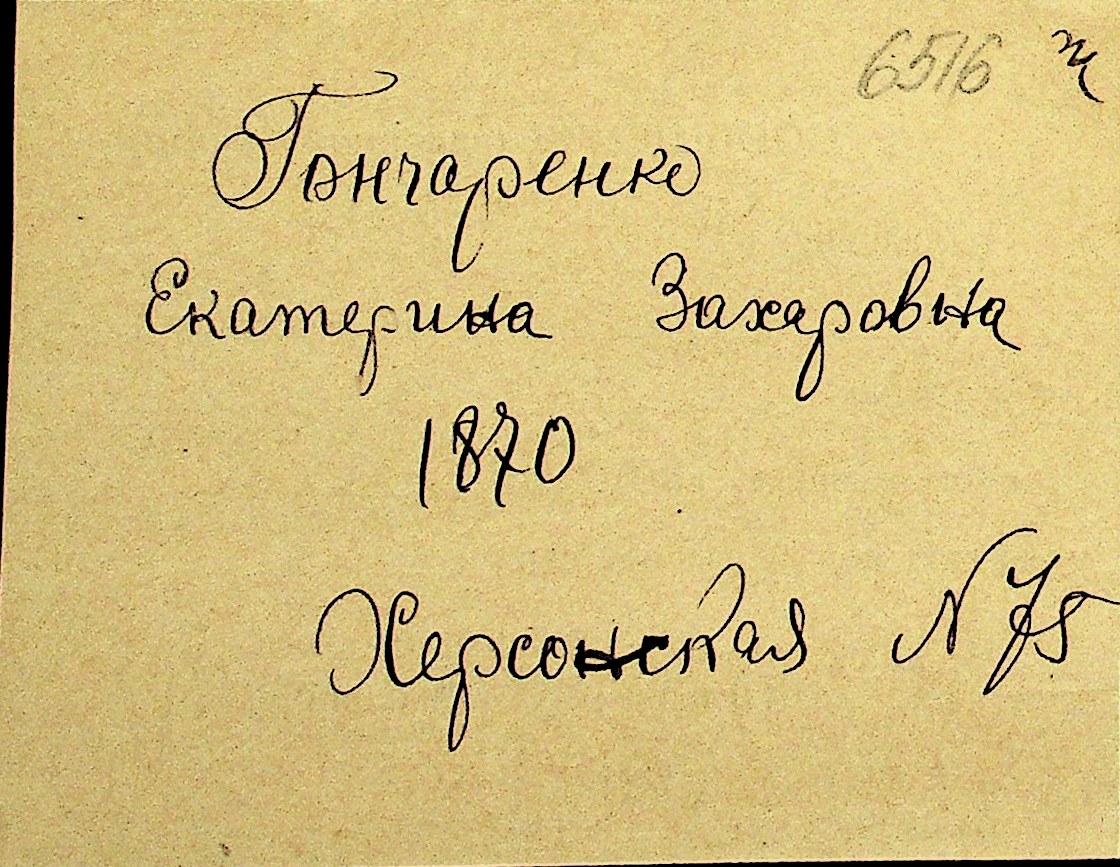 6516
Гончаренко
Екатерина Захаровна
1870
Херсонская N 75